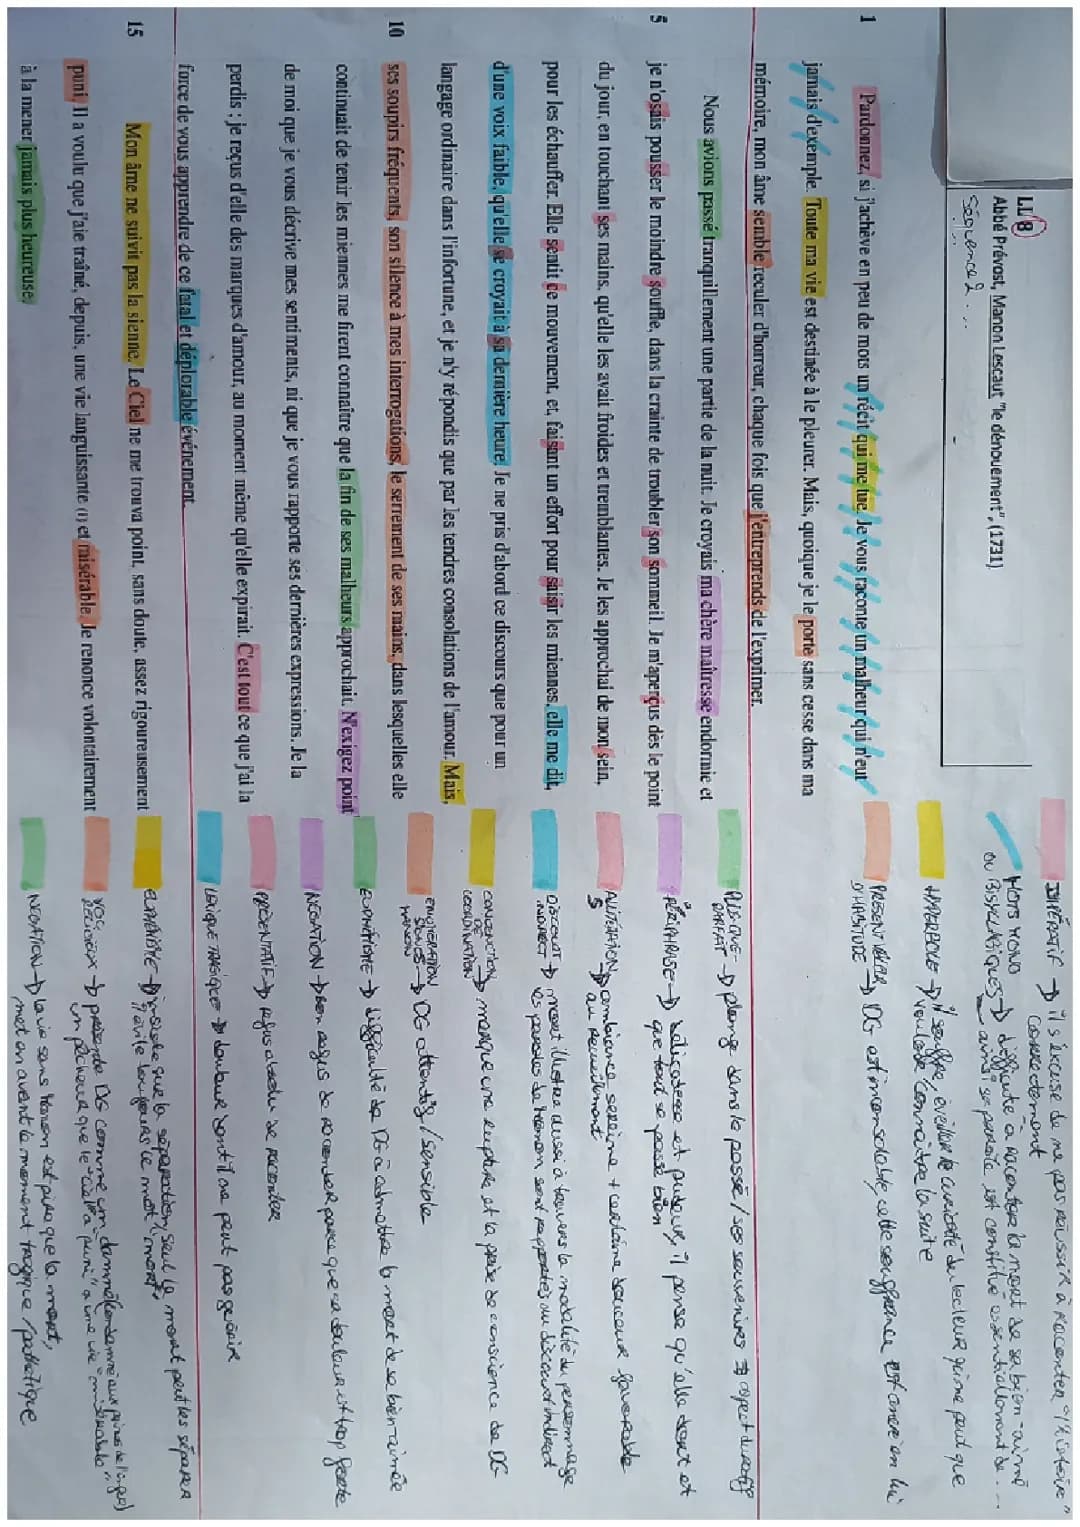 LL 8
Abbé Prévost, Manon Lescaut, "le dénouement", (1731)
Séquence 2...
1 Pardonnez, si j'achève en peu de mots un récit qui me tue. Je vous raconte un malheur qui n'eut
jamais d'exemple. Toute ma vie est destinée à le pleurer. Mais, quoique je le porte sans cesse dans ma
mémoire, mon âme semble reculer d'horreur, chaque fois que j'entreprends de l'exprimer.
Nous avions passé tranquillement une partie de la nuit. Je croyais ma chère maîtresse endormie et
5 je n'osais pousser le moindre souffle, dans la crainte de troubler son sommeil. Je m'aperçus dès le point
du jour, en touchant ses mains, qu'elle les avait froides et tremblantes. Je les approchai de mon sein,
pour les échauffer. Elle sentit ce mouvement, et, faisant un effort pour saisir les miennes, elle me dit,
d'une voix faible, qu'elle se croyait à sa dernière heure. Je ne pris d'abord ce discours que pour un
langage ordinaire dans l'infortune, et je n'y répondis que par les tendres consolations de l'amour. Mais,
10 ses soupirs fréquents, son silence à mes interrogations, le serrement de ses mains, dans lesquelles elle
continuait de tenir les miennes me firent connaître que la fin de ses malheurs approchait. N'exigez point
de moi que je vous décrive mes sentiments, ni que je vous rapporte ses dernières expressions. Je la
perdis ; je reçus d'elle des marques d'amour, au moment même qu'elle expirait. C'est tout ce que j'ai la
force de vous apprendre de ce fatal et déplorable événement.
15 Mon âme ne suivit pas la sienne. Le Ciel ne me trouva point, sans doute, assez rigoureusement
puni. Il a voulu que j'aie traîné, depuis, une vie languissante (1) et misérable. Je renonce volontairement
à la mener jamais plus heureuse.
IMPÉRATIF → il s'excuse de ne pas réussir à raconter "l'histoire"
correctement
MOTS MONO → difficulté à raconter la mort de sa bien-aimé
ou BISYLLABIQUES ainsi sa parole est constitué essentiellement de ...
HYPERBOLE → "il souffre", éveiller la curiosité du lecteur qui ne peut que
vouloir connaître la suite
PRÉSENT → DG est inconsolable, cette souffrance est ancré en lui
D'HABITUDE
PLUS-QUE-PARFAIT → plonge dans le passé / ses souvenirs aspect duratif
PÉRIPHRASE → délicatesse et pudeur, il pense qu'elle dort et
que tout se passe bien
ALLITÉRATION → ambiance sereine + certaine douceur favorable
S au recueillement
DISCOURS → mort illustre aussi à travers la modalité du personnage
INDIRECT les paroles de Manon sont rapportés au discours indirect
CONJONCTION → marque une rupture et la prise de conscience de DG
DE COORDINATION
ÉNUMÉRATION → DG attentif / sensible
MANON
EUPHÉMISME → difficulté de DG à admettre la mort de sa bien-aimée
NÉGATION → bon refus de raconter parce que sa douleur est trop forte
PRÉSENTATIF → refus absolu de raconter
LEXIQUE TRAGIQUE → douleur dont il ne peut pas guérir
EUPHÉMISME → insiste sur la séparation, seul la mort peut les séparer
il évite toujours le mot "mort"
VOC. RELIGIEUX → présente DG comme un damné (condamné aux peines de l'enfer)
un pécheur que le "ciel" a "puni" a une vie "misérable"
NÉGATION → la vie sans Manon est pire que la mort,
met en avant le moment tragique / pathétique